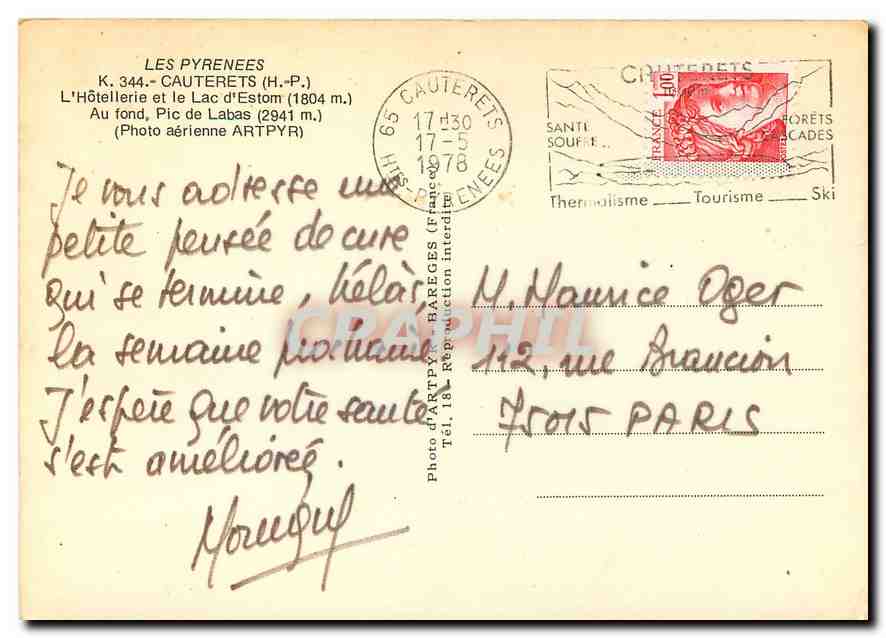 LES PYRENEES
K. 344.- CAUTERETS (H.-P.)
L'Hôtellerie et le Lac d'Estom (1804 m.)
Au fond, Pic de Labas (2941 m.)
(Photo aérienne ARTPYR)
65 CAUTERETS
17H30
17-5
1978
HTES-PYRENEES
CAUTERETS
SANTE
SOUFRE...
FORÊTS
CASCADES
Thermalisme ___ Tourisme ___ Ski
1,00
FRANCE
Je vous adresse une
petite pensée de cure
qui se termine, hélas,
la semaine prochaine
J'espère que votre santé
s'est améliorée.
Photo d'ARTPYR - BAREGES (France)
Tél. 18 - Reproduction interdite
M. Maurice Oger
112, rue Brancion
75015 PARIS
CRAPHIL